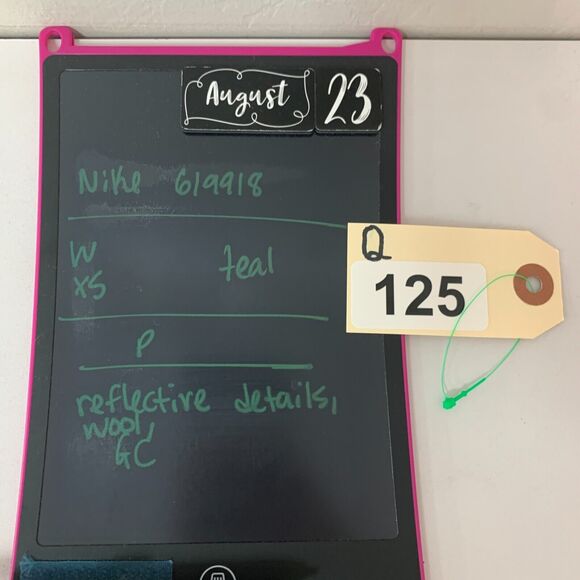 August 23
Nike 619918
W teal
XS
P
reflective details,
wool,
GC
Q
125